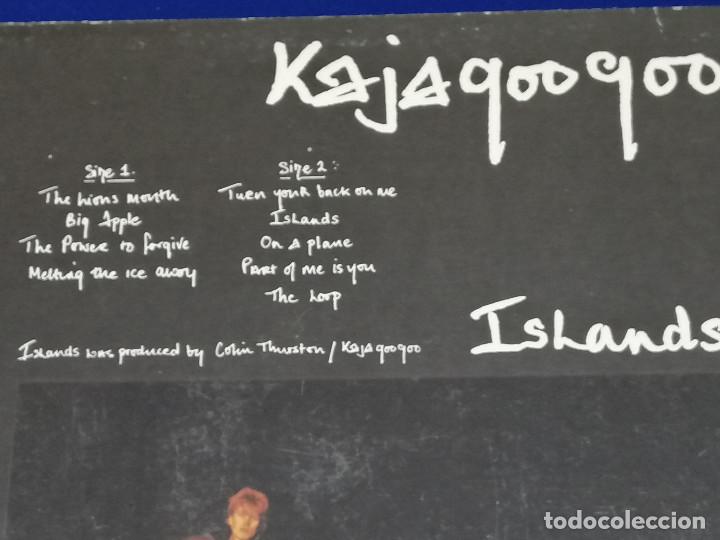 Kajagoogoo
Side 1.
The Lions Mouth
Big Apple
The Power to forgive
Melting the ice away
Side 2:
Turn your back on me
Islands
On a plane
Part of me is you
The Loop
Islands
Islands was produced by Colin Thurston / Kajagoogoo
todocoleccion